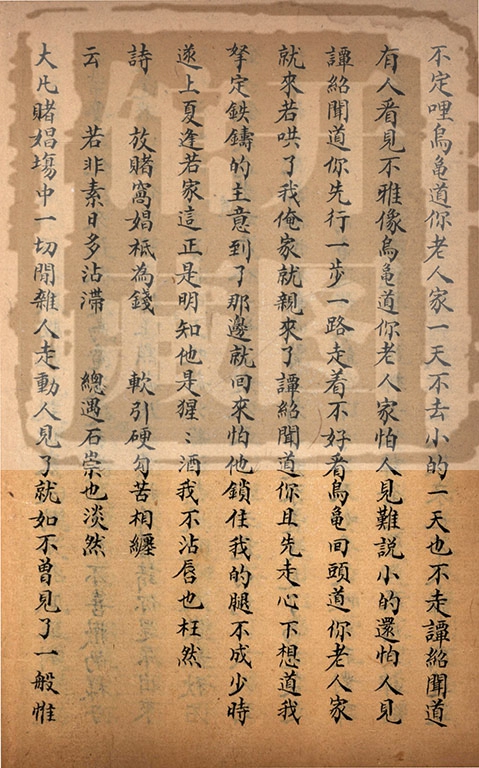 不定哩烏龜道你老人家一天不去小的一天也不走譚紹聞道
有人看見不雅像烏龜道你老人家怕人見難説小的還怕人見
譚紹聞道你先行一步一路走着不好看烏龜回頭道你老人家
就來若哄了我俺家就親來了譚紹聞道你且先走心下想道我
拏定鉄鑄的主意到了那邊就回來怕他鎖住我的腿不成少時
遂上夏逢若家這正是明知他是猩〻酒我不沾唇也枉然
詩　放賭窩娼袛為錢　軟引硬勾苦相纏
云　若非素日多沾滯　總遇石崇也淡然
大凢賭娼塲中一切閒雜人走動人見了就如不曾見了一般惟